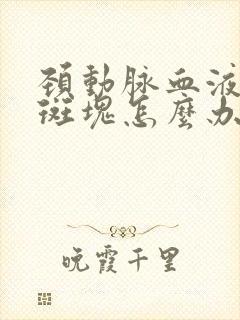 頚動脉血液
斑塊怎麼办
晚霞千里